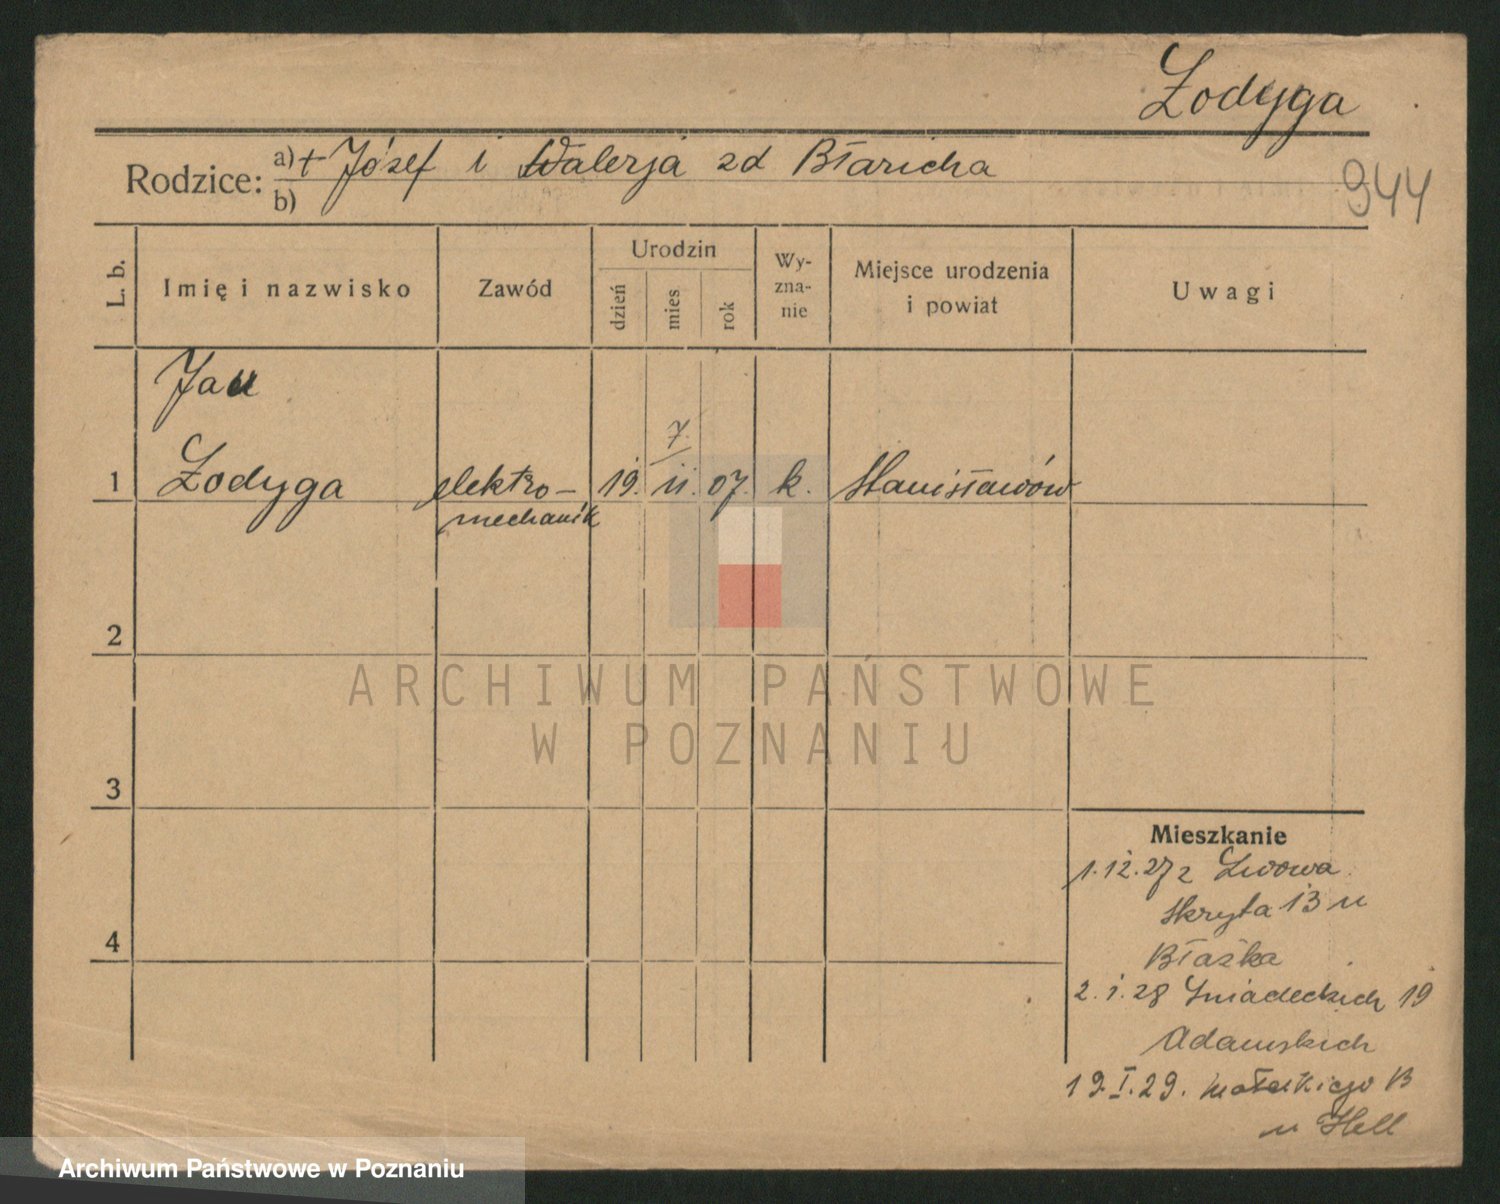 Żodyga
Rodzice: a) + Józef i Walerja zd Błaricha
b)
944
L. b.
Imię i nazwisko
Zawód
Urodzin
dzień
mies
rok
Wy-
zna-
nie
Miejsce urodzenia
i powiat
Uwagi
Jan
7.
1 Żodyga elektro- 19. 11. 07. k. Stanisławów
mechanik
2
ARCHIWUM PAŃSTWOWE
W POZNANIU
3
Mieszkanie
1.12.27 z Lwowa
Skryta 13 u
Błażka
4
2.1.28 Śniadeckich 19
Adamskich
19.I.29.
u Hell
Archiwum Państwowe w Poznaniu